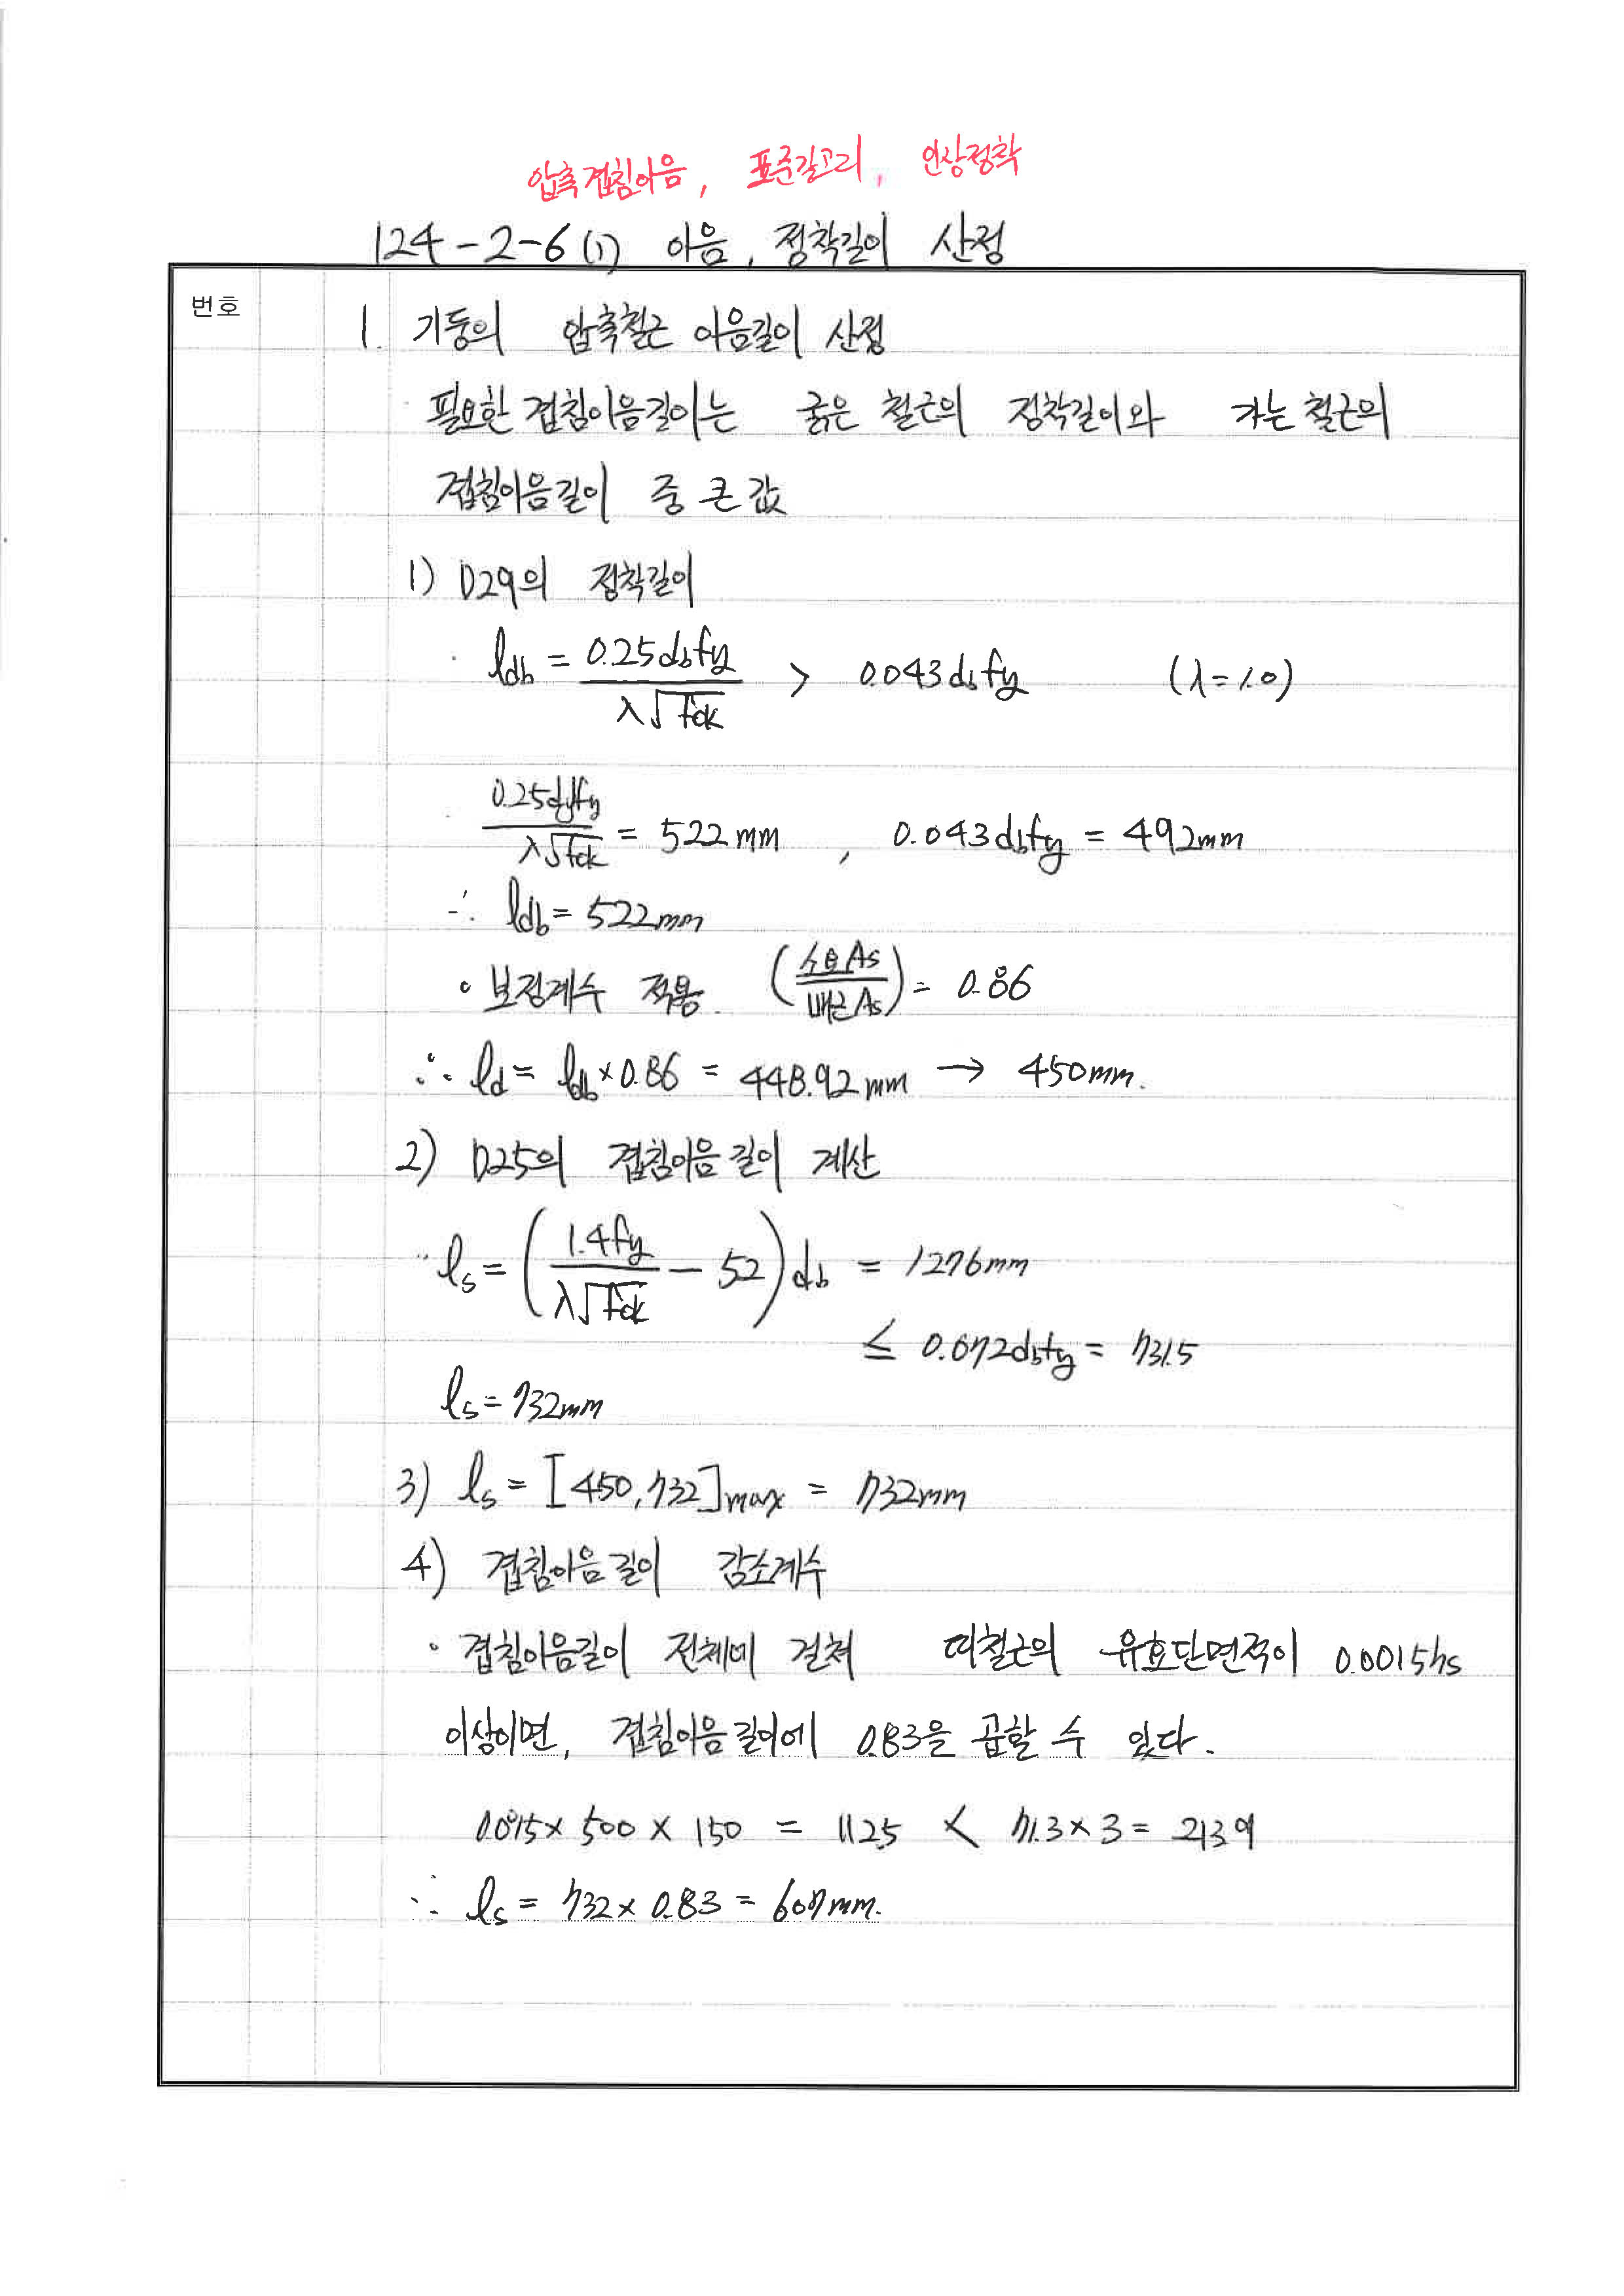 압축겹침이음, 표준갈고리, 인장정착
124-2-6(1) 이음, 정착길이 산정
번호
1. 기둥의 압축철근 이음길이 산정
필요한 겹침이음길이는 굵은 철근의 정착길이와 가는 철근의
겹침이음길이 중 큰 값
1) D29의 정착길이
· ldb = 0.25dbfy / λ√fck > 0.043dbfy (λ=1.0)
0.25dbfy / λ√fck = 522mm, 0.043dbfy = 492mm
∴ ldb = 522mm
· 보정계수 적용. (소요As / 배근As) = 0.86
∴ ld = ldb × 0.86 = 448.92mm → 450mm.
2) D25의 겹침이음길이 계산
· ls = (1.4fy / λ√fck − 52)db = 1276mm
≤ 0.072dbfy = 731.5
ls = 732mm
3) ls = [450, 732]max = 732mm
4) 겹침이음길이 감소계수
· 겹침이음길이 전체에 걸쳐 띠철근의 유효단면적이 0.0015hs
이상이면, 겹침이음길이에 0.83을 곱할 수 있다.
0.0015 × 500 × 150 = 112.5 < 71.3 × 3 = 213.9
∴ ls = 732 × 0.83 = 607mm.